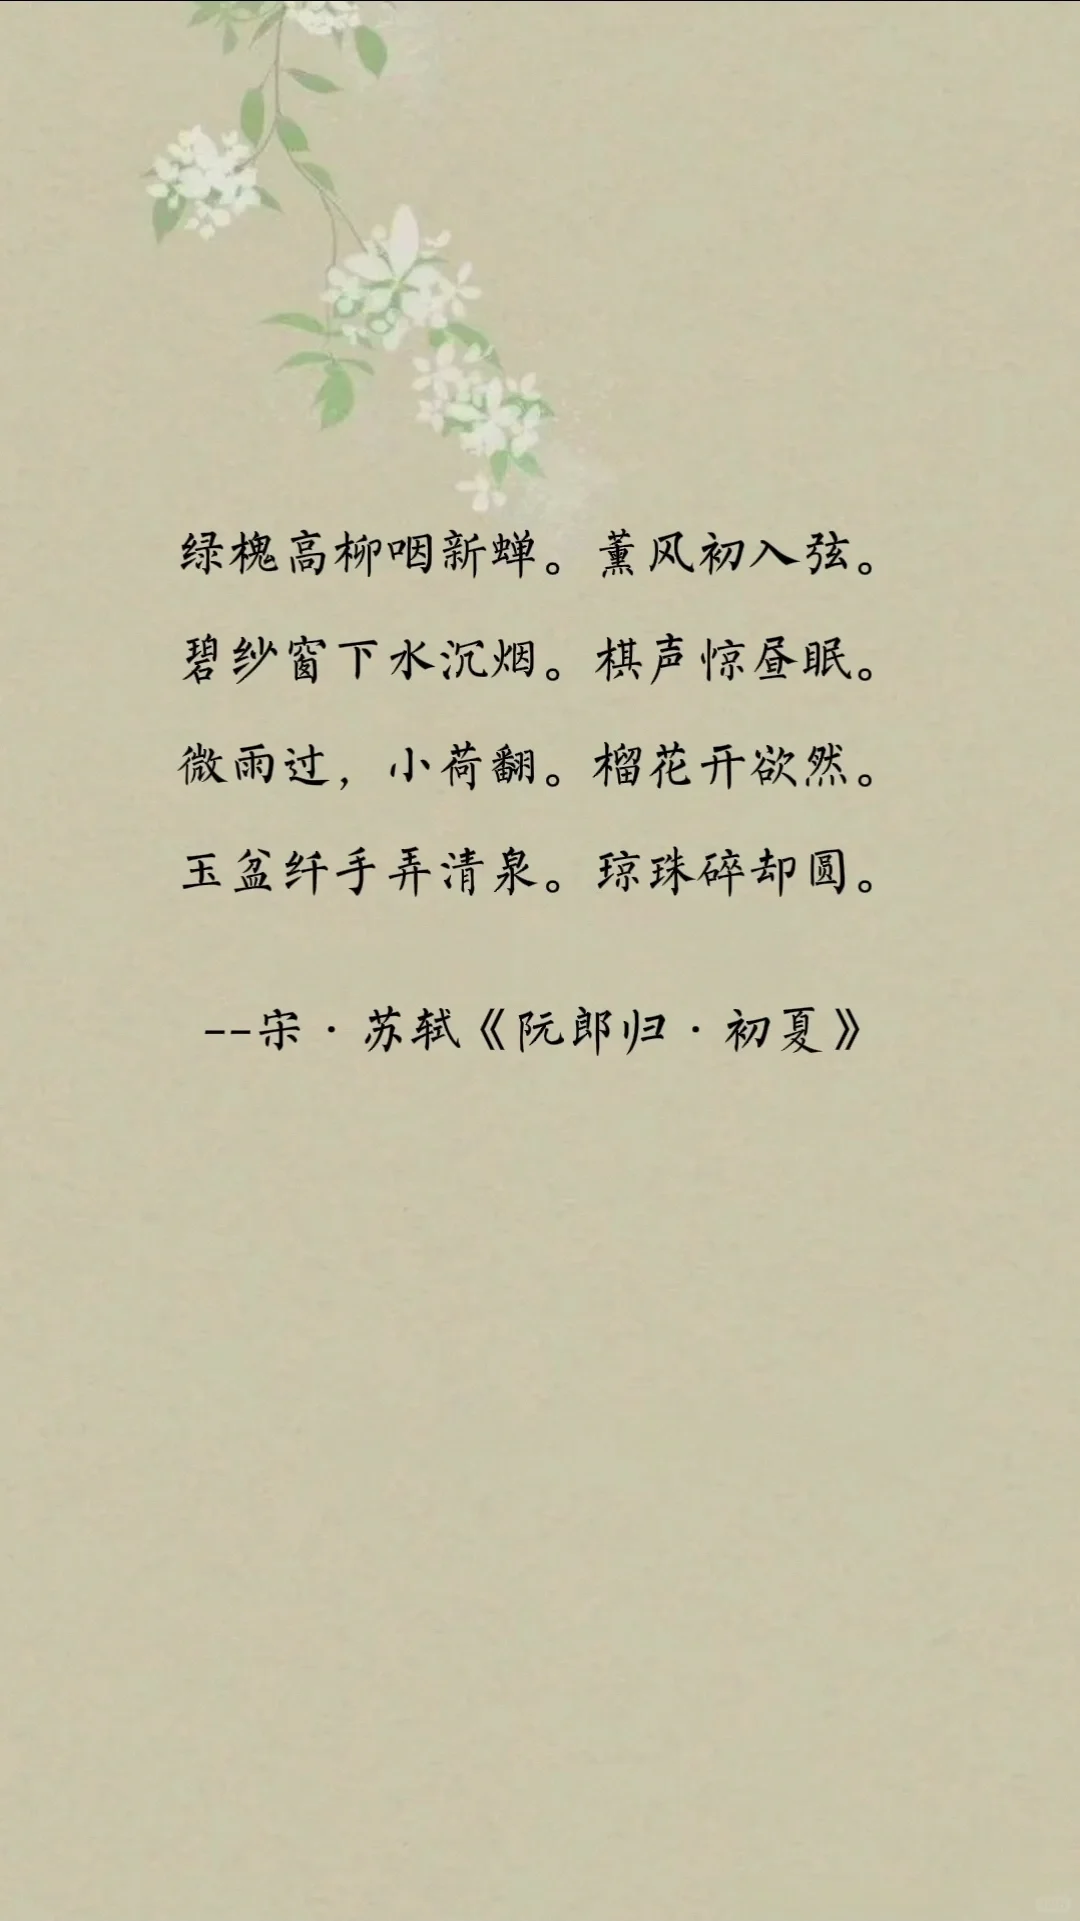 绿槐高柳咽新蝉。薰风初入弦。
碧纱窗下水沉烟。棋声惊昼眠。
微雨过，小荷翻。榴花开欲然。
玉盆纤手弄清泉。琼珠碎却圆。
--宋·苏轼《阮郎归·初夏》